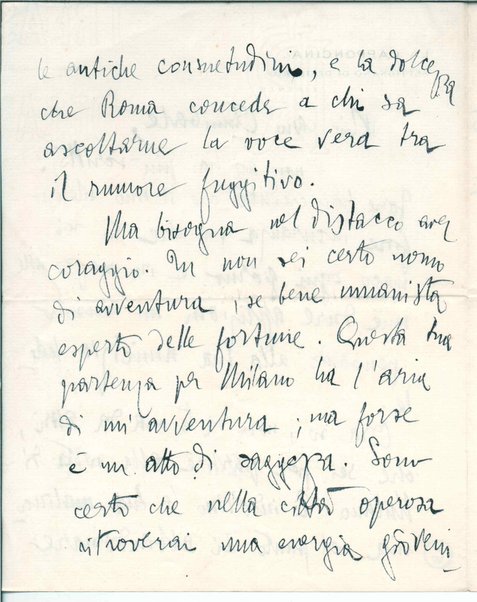 le antiche consuetudini, e la dolcezza
che Roma concede a chi sa
ascoltarne la voce vera tra
il rumore fuggitivo.
Ma bisogna nel distacco aver
coraggio. Tu non sei certo uomo
di avventura, se bene umanista
esperto delle fortune. Questa tua
partenza per Milano ha l'aria
di un'avventura; ma forse
è un atto di saggezza. Sono
certo che nella città operosa
ritroverai una energia gioveni-